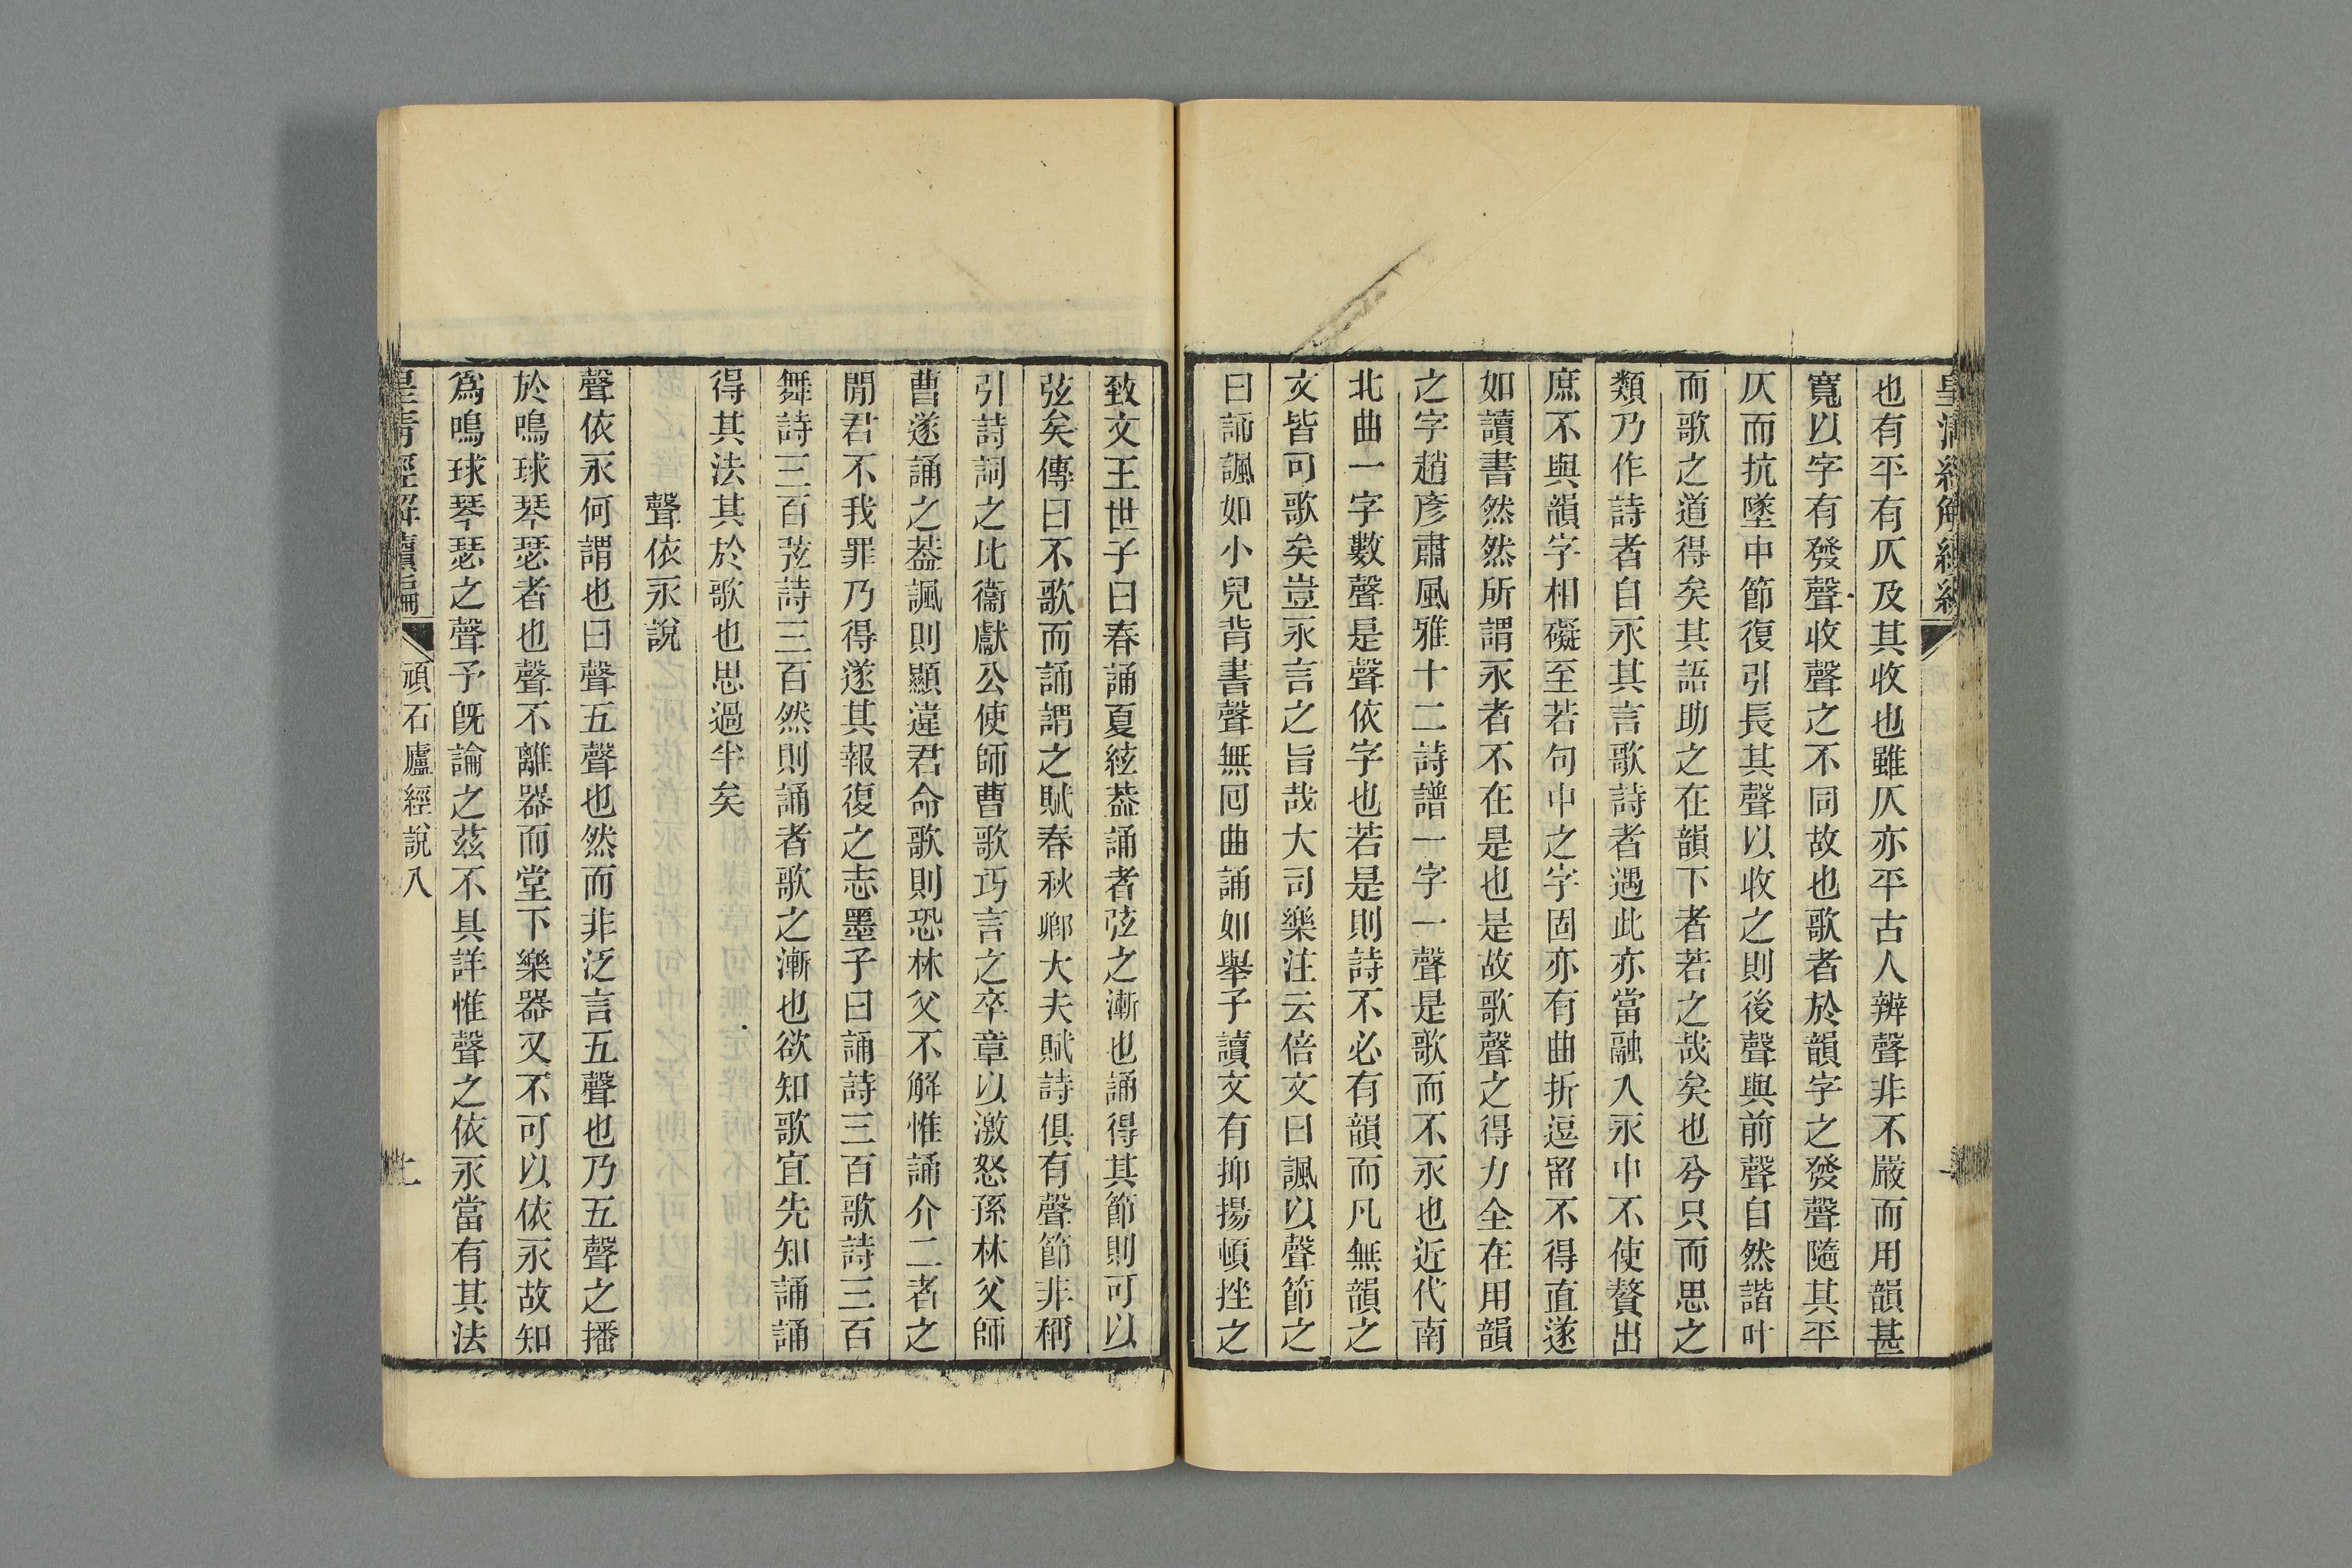 也有平有仄及其收也雖仄亦平古人辨聲非不嚴而用韻甚
寬以字有發聲收聲之不同故也歌者於韻字之發聲隨其平
仄而抗墜中節復引長其聲以收之則後聲與前聲自然諧叶
而歌之道得矣其語助之在韻下者若之哉矣也兮只而思之
類乃作詩者自永其言歌詩者遇此亦當融入永中不使贅出
庶不與韻字相礙至若句中之字固亦有曲折逗留不得直遂
如讀書然然所謂永者不在是也是故歌聲之得力全在用韻
之字趙彥肅風雅十二詩譜一字一聲是歌而不永也近代南
北曲一字數聲是聲依字也若是則詩不必有韻而凡無韻之
文皆可歌矣豈永言之旨哉大司樂注云倍文曰諷以聲節之
曰誦諷如小兒背書聲無回曲誦如舉子讀文有抑揚頓挫之
致文王世子曰春誦夏絃葢誦者弦之漸也誦得其節則可以
弦矣傳曰不歌而誦謂之賦春秋卿大夫賦詩俱有聲節非稱
引詩詞之比衞獻公使師曹歌巧言之卒章以激怒孫林父師
曹遂誦之葢諷則顯違君命歌則恐林父不解惟誦介二者之
閒君不我罪乃得遂其報復之志墨子曰誦詩三百歌詩三百
舞詩三百弦詩三百然則誦者歌之漸也欲知歌宜先知誦誦
得其法其於歌也思過半矣
聲依永說
聲依永何謂也曰聲五聲也然而非泛言五聲也乃五聲之播
於鳴球琴瑟者也聲不離器而堂下樂器又不可以依永故知
爲鳴球琴瑟之聲予旣論之茲不具詳惟聲之依永當有其法
皇清經解續編 頑石廬經說八